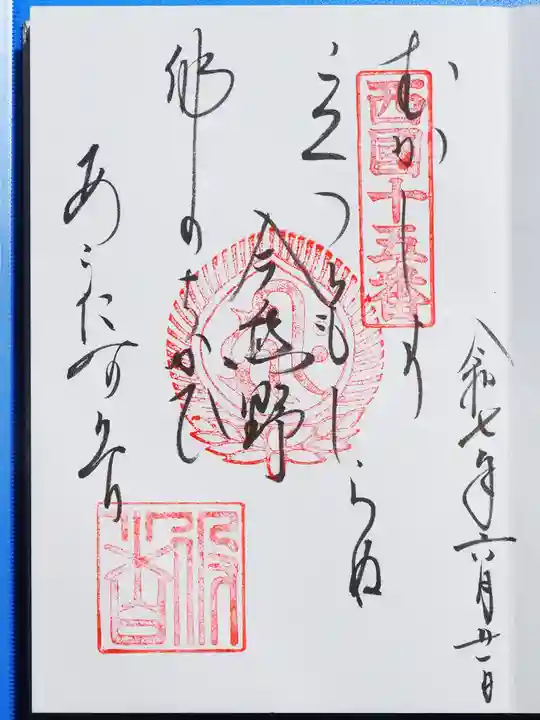 令和七年六月廿一日
西國十五番
むかしより
立つともしらぬ
今熊野
佛のちかひ
あらたなりけり